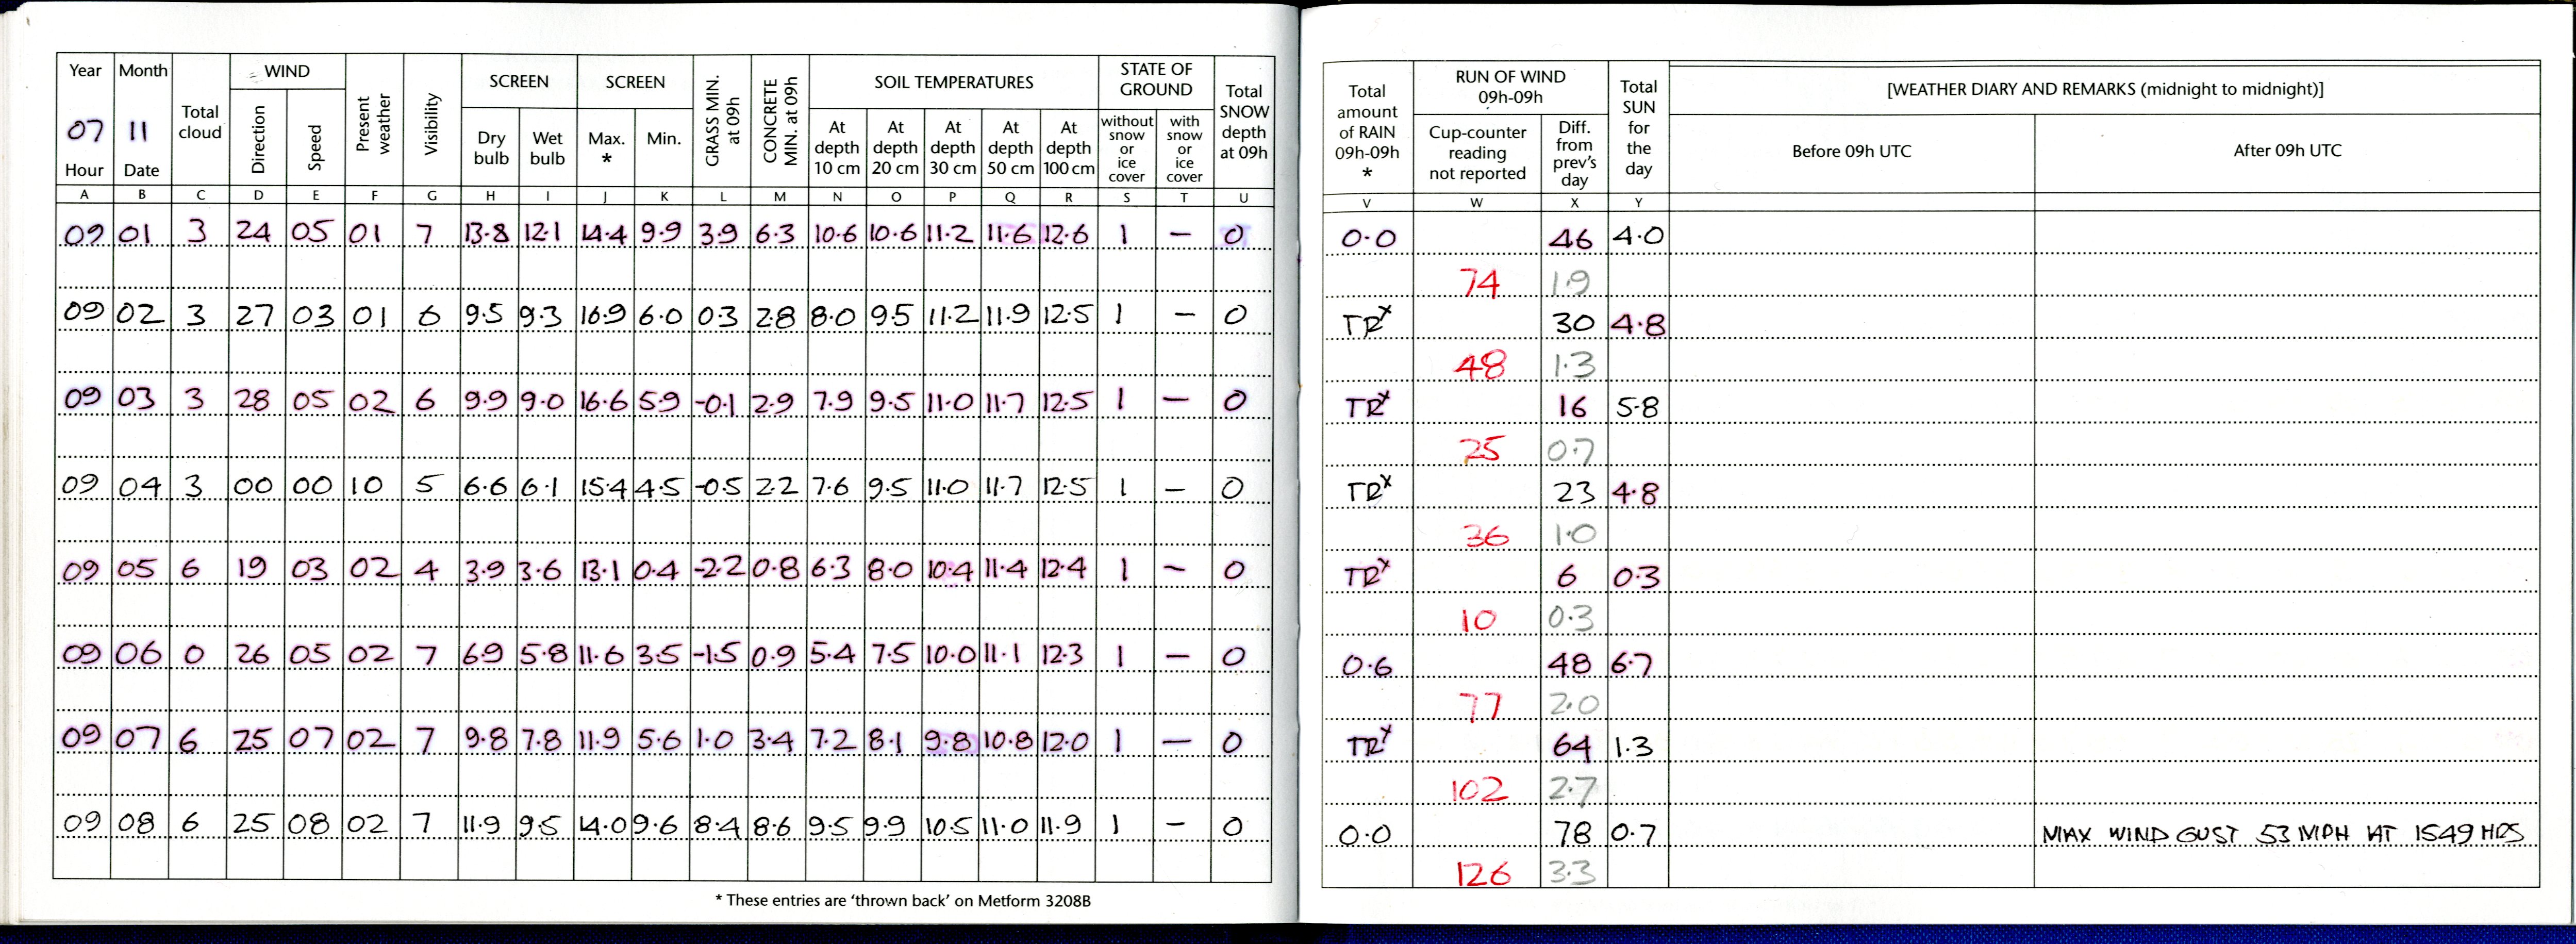 Year Month Total cloud WIND Present weather Visibility SCREEN SCREEN GRASS MIN. at 09h CONCRETE MIN. at 09h SOIL TEMPERATURES STATE OF GROUND Total SNOW depth at 09h
07 11 Direction Speed Dry bulb Wet bulb Max. * Min. At depth 10 cm At depth 20 cm At depth 30 cm At depth 50 cm At depth 100 cm without snow or ice cover with snow or ice cover
Hour Date
A B C D E F G H I J K L M N O P Q R S T U
09 01 3 24 05 01 7 13.8 12.1 14.4 9.9 3.9 6.3 10.6 10.6 11.2 11.6 12.6 1 – 0
09 02 3 27 03 01 6 9.5 9.3 16.9 6.0 0.3 2.8 8.0 9.5 11.2 11.9 12.5 1 – 0
09 03 3 28 05 02 6 9.9 9.0 16.6 5.9 -0.1 2.9 7.9 9.5 11.0 11.7 12.5 1 – 0
09 04 3 00 00 10 5 6.6 6.1 15.4 4.5 -0.5 2.2 7.6 9.5 11.0 11.7 12.5 1 – 0
09 05 6 19 03 02 4 3.9 3.6 13.1 0.4 -2.2 0.8 6.3 8.0 10.4 11.4 12.4 1 – 0
09 06 0 26 05 02 7 6.9 5.8 11.6 3.5 -1.5 0.9 5.4 7.5 10.0 11.1 12.3 1 – 0
09 07 6 25 07 02 7 9.8 7.8 11.9 5.6 1.0 3.4 7.2 8.1 9.8 10.8 12.0 1 – 0
09 08 6 25 08 02 7 11.9 9.5 14.0 9.6 8.4 8.6 9.5 9.9 10.5 11.0 11.9 1 – 0
* These entries are ‘thrown back’ on Metform 3208B
Total amount of RAIN 09h-09h * RUN OF WIND 09h-09h Total SUN for the day [WEATHER DIARY AND REMARKS (midnight to midnight)]
Cup-counter reading not reported Diff. from prev's day Before 09h UTC After 09h UTC
V W X Y
0.0 46 4.0
74 1.9
TRx 30 4.8
48 1.3
TRx 16 5.8
25 0.7
TRx 23 4.8
36 1.0
TRx 6 0.3
10 0.3
0.6 48 6.7
77 2.0
TRx 64 1.3
102 2.7
0.0 78 0.7 MAX WIND GUST 53 MPH AT 1549 HRS
126 3.3